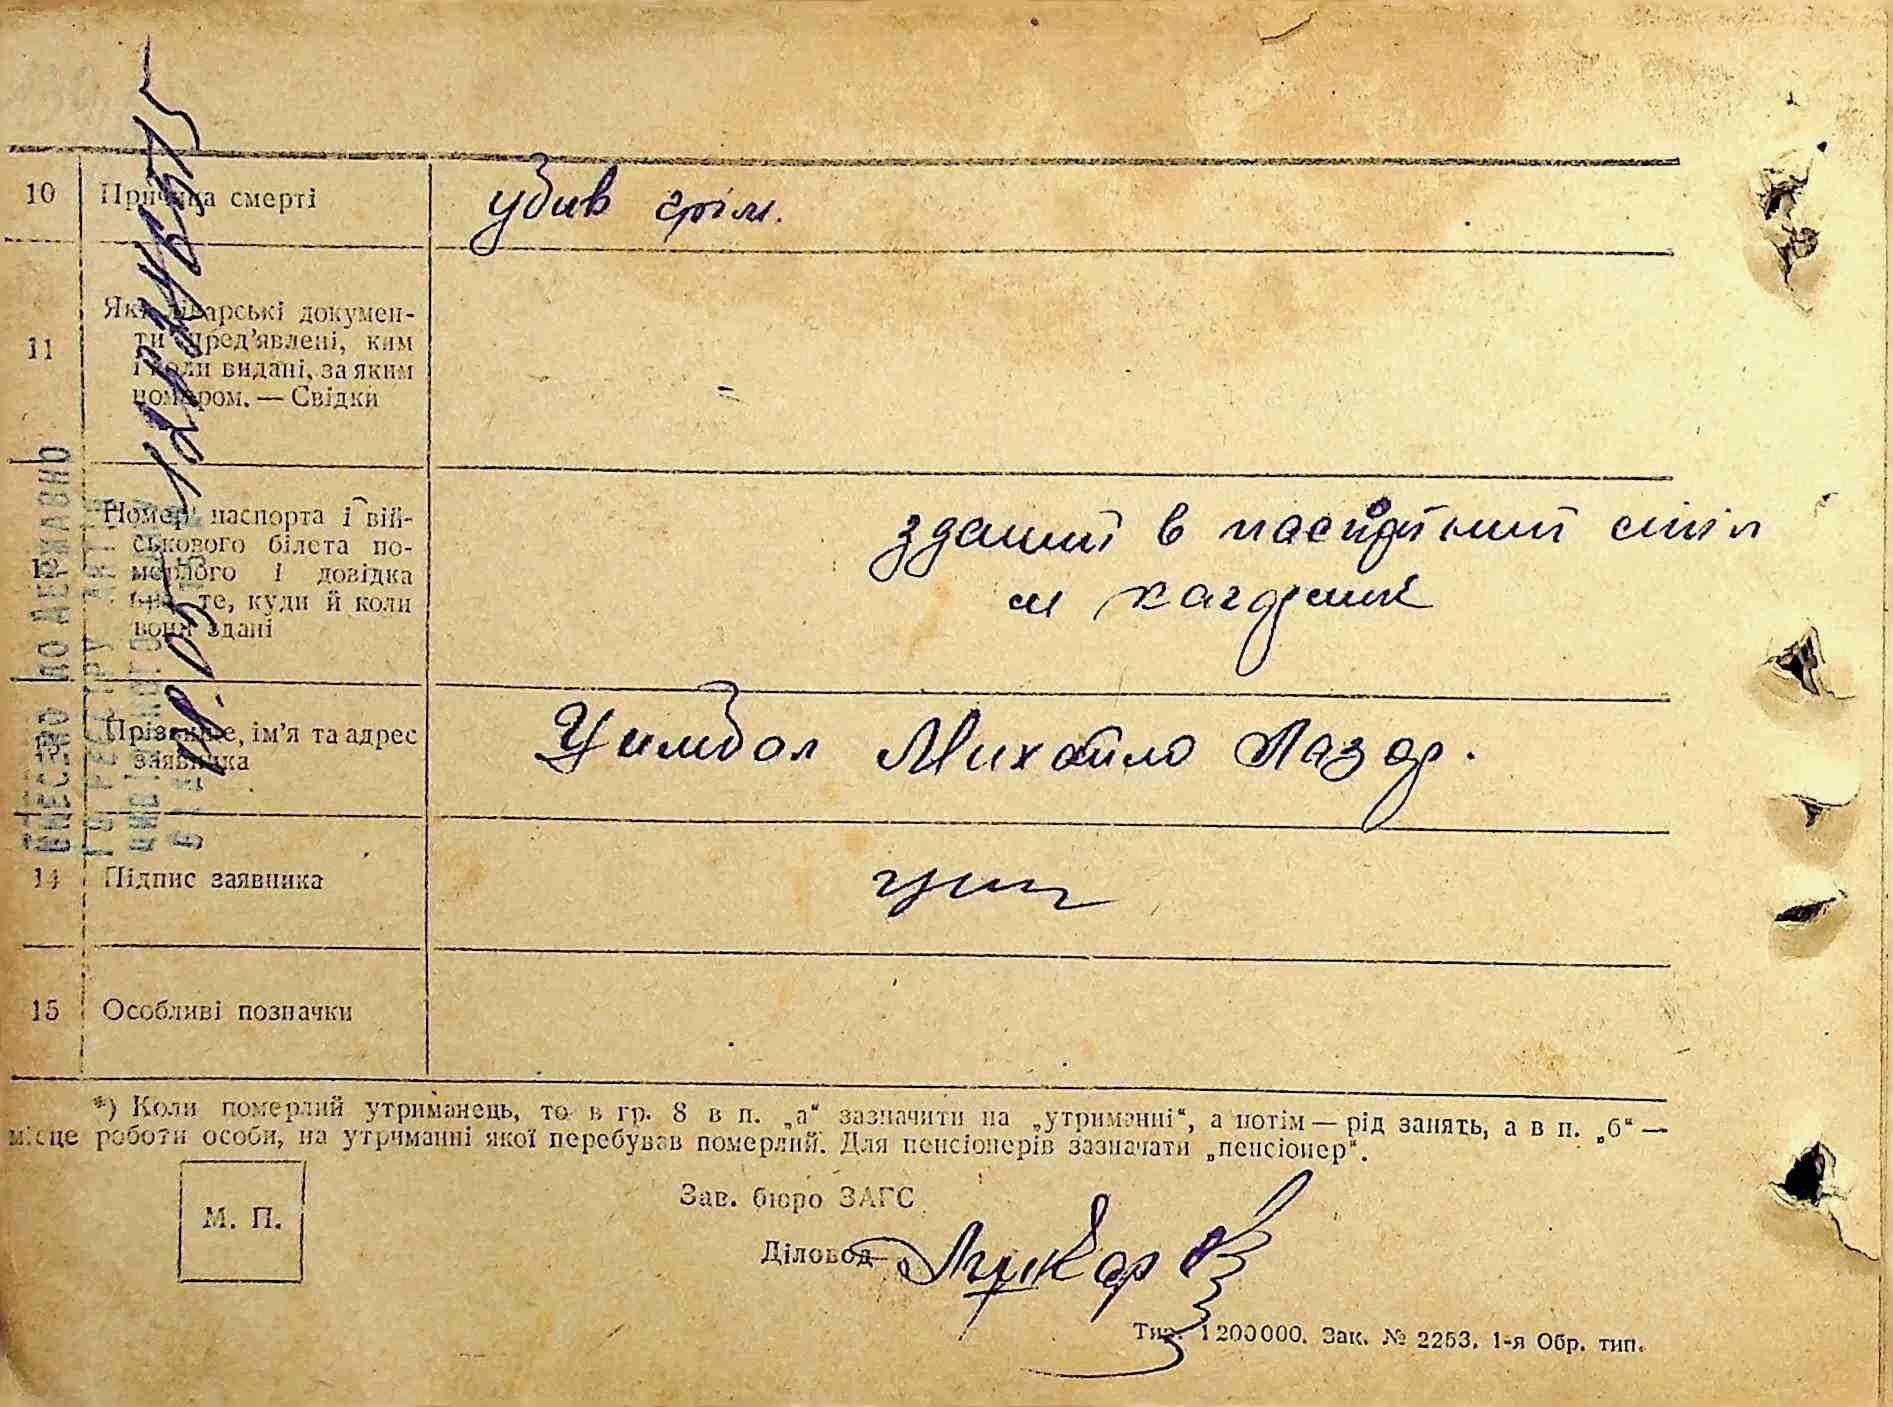 10 Причина смерті убив грім.
11 Які лікарські докумен-
ти пред'явлені, ким
і коли видані, за яким
номером. — Свідки
=
12 Номер паспорта і вій-
ськового білета по-
мерлого і довідка
про те, куди й коли
вони здані
зданий в паспортний стіл
м
13 Прізвище, ім'я та адрес
заявника
Цимбал Михайло Лазар.
14 Підпис заявника
15 Особливі позначки
*) Коли померлий утриманець, то в гр. 8 в п. „а“ зазначити на „утриманні“, а потім — рід занять, а в п. „б“ —
місце роботи особи, на утриманні якої перебував померлий. Для пенсіонерів зазначати „пенсіонер“.
М. П.
Зав. бюро ЗАГС
Діловод
Тир. 1 200000. Зак. № 2253. 1-я Обр. тип.
ВНЕСЕНО ДО ДЕРЖАВНО
ГО РЕЄСТРУ АКТІВ